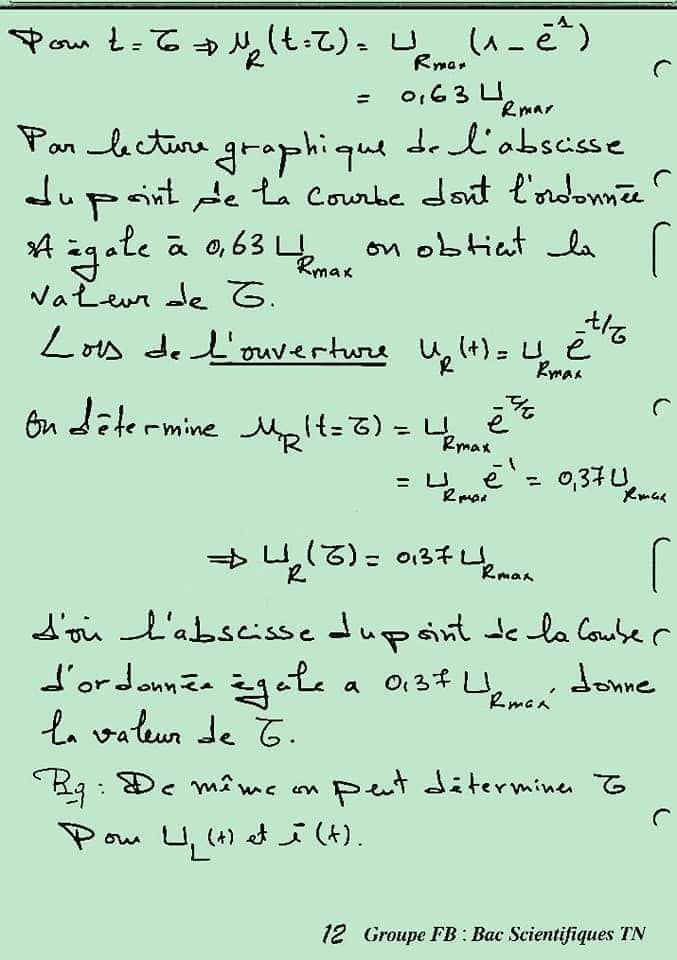 Pour t = τ ⇒ u_R(t=τ) = U_Rmax (1 - e⁻¹)
= 0,63 U_Rmax
Par lecture graphique de l'abscisse
du point de la courbe dont l'ordonnée
égale à 0,63 U_Rmax on obtient la
valeur de τ.
Lors de l'ouverture u_R(t) = U_Rmax e^(-t/τ)
On détermine u_R(t=τ) = U_Rmax e^(-τ/τ)
= U_Rmax e⁻¹ = 0,37 U_Rmax
⇒ U_R(τ) = 0,37 U_Rmax
d'où l'abscisse du point de la Courbe
d'ordonnée égale a 0,37 U_Rmax, donne
la valeur de τ.
Rq : De même on peut déterminer τ
Pour U_L(t) et i(t).
12 Groupe FB : Bac Scientifiques TN